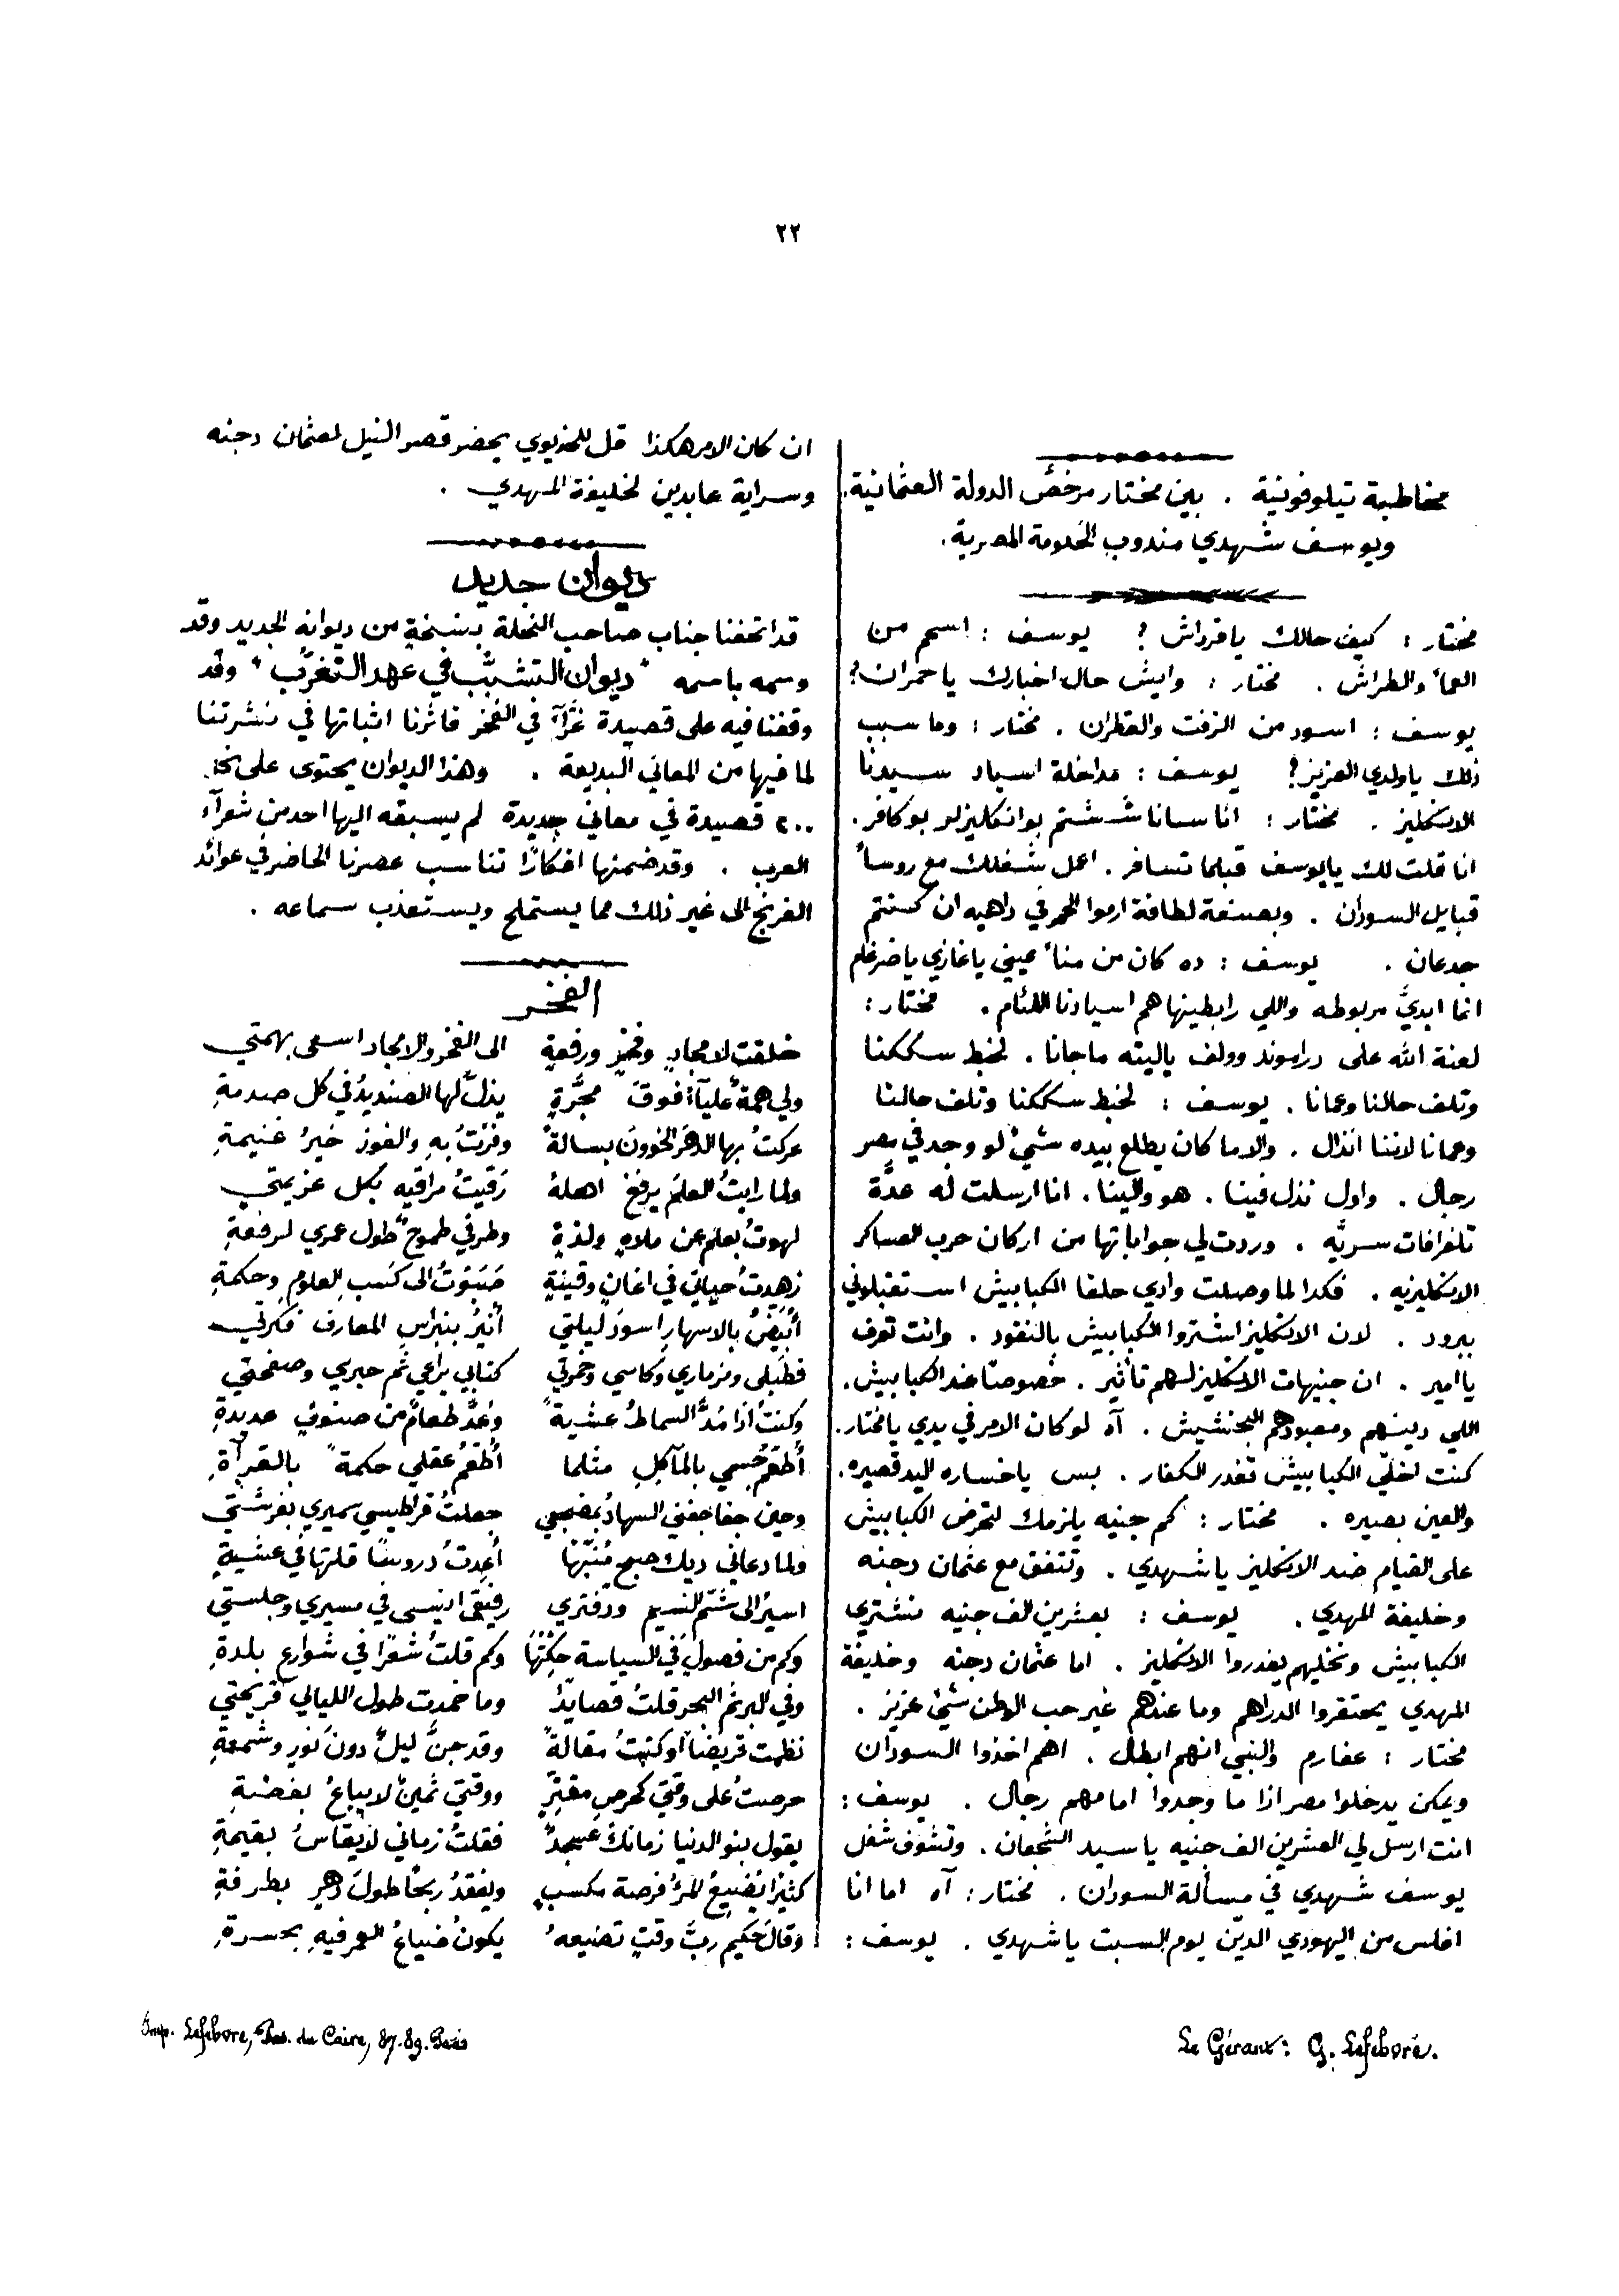 ٢٢
مخاطبة تيلوفونية . بين مختار مرخص الدولة العثمانية
ويوسف شهدي مندوب الحكومة المصرية .
مختار : كيف حالك يا قرداش ؟ يوسف : اسم من
العمأ والطراش . مختار : وايش حال اخبارك يا حمران ؟
يوسف : اسود من الزفت والقطران . مختار : وما سبب
ذلك ياولدي العزيز ؟ يوسف : مداخلة اسياد سيدنا
الانكليز . مختار : اناسانا ششتم بوانكليزلر بوكافر .
انا قلت لك يايوسف قبلما تسافر . اعمل شغلك مع روسأ
قبايل السودان . وبصنعة لطافة ارموا الحمر في داهيه ان كنتم
جدعان . يوسف : ده كان من منأ عيني ياغازي ياضرغام
انما ايديَّ مربوطه واللي رابطينها هم اسيادنا اللئام . مختار :
لعنة الله على دراموند وولف ياليته ماجانا . لخبط سككنا
وتلف حالنا وعمانا . يوسف : لخبط سككنا وتلف حالنا
وعمانا لاننا انذال . والا ما كان يطلع بيده شيء لو وجد في مصر
رجال . واول نذل فينا . هو والينا . انا ارسلت له عدَّة
تلغرافات سريَّه . وردت لي جواباتها من اركان حرب العساكر
الانكليزيه . فكدا لما وصلت وادي حلفا الكبابيش استقبلوني
ببرود . لان الانكليز اشتروا الكبابيش بالنقود . وانت تعرف
يا امير . ان جنيهات الانكليز لهم تأثير . خصوصًا عند الكبابيش .
اللي دينهم ومعبودهم البخشيش . آه لو كان الامر في يدي يا مختار .
كنت اخلّي الكبابيش تغدر الكفار . بس ياخساره اليد قصيره .
والعين بصيره . مختار : كم جنيه يلزمك لتحرض الكبابيش
على القيام ضد الانكليز يا شهدي . وتتفق مع عثمان دجنه
وخليفة المهدي . يوسف : بعشرين الف جنيه نشتري
الكبابيش ونخليهم يغدروا الانكليز . اما عثمان دجنه وخليفة
المهدي يحتقروا الدراهم وما عندهم غير حب الوطن شيء عزيز .
مختار : عفارم والنبي انهم ابطال . اهم اخذوا السودان
ويمكن يدخلوا مصر اذا ما وجدوا امامهم رجال . يوسف :
انت ارسل لي العشرين الف جنيه يا سيد الشجعان . وتشوف شغل
يوسف شهدي في مسألة السودان . مختار : آه اما انا
افلس من اليهودي الديّن يوم السبت يا شهدي . يوسف :
ان كان الامر هكذا قل للخديوي يحضر قصر النيل لعثمان دجنه
وسراية عابدين لخليفة المهدي .
ديوان جديد
قد اتحفنا جناب صاحب النحلة بنسخة من ديوانه الجديد وقد
وسمه باسمه " ديوان التشبُّب في عهد التغرُّب " وقد
وقفنا فيه على قصيدة غرَّآء في الفخر فاثرنا اثباتها في نشرتنا
لما فيها من المعاني البديعة . وهذا الديوان يحتوى على نحو
٢٠٠ قصيدة في معاني جديدة لم يسبقه اليها احد من شعرآء
العرب . وقد ضمنها افكارًا تناسب عصرنا الحاضر في عوائد
الفرنج الى غير ذلك مما يستملح ويستعذب سماعه .
الفخر
خلقت لامجادٍ وفخرٍ ورفعةٍ الى الفخر والامجاد اسعى بهمتي
ولي همةٌ عليآءُ فوق مجرَّةٍ يذلُّ لها الصنديدُ في كل صدمةِ
عركتُ بها الدهر الخوون بسالةً وفزتُ بهِ والفوز خيرُ غنيمةِ
ولما رايتُ العلم يرفعُ اهلهُ رقيتُ مراقيه بكل عزيمتي
لهوتُ بعلمٍ عن ملاهٍ ولذةٍ وطرفي طموحٌ طول عمري لرفعةِ
زهدتُ حياتي في اغانٍ وقينةٍ صَبَوتُ الى كسب العلوم وحكمةِ
أُبيِّضُ بالاسهار اسودَ ليلتي أُنيرُ بنبراسِ المعارف فكرتي
فطبلى ومزماري وكاسي وخمرتي كتابي يراعي ثم حبري وصفحتي
وكنتُ اذا مُدَّ السماطُ عشيةً وعُدَّ طعامٌ من صنوفٍ عديدةِ
أُطعِمُ جسمي بالمآكلِ مثلما أُطعمُ عقلي حكمةً بالقرآءةِ
وحين جفا جفني السهادُ بمضجعي جعلتُ قراطيسي سميري بفرشتي
ولما دعاني ديك صبحٍ مُنبِّهًا أُعِدتُ دروسًا قلتها في عشيةِ
اسيرُ الى شمّ النسيم ودفتري رفيقي انيسي في مسيري وجلستي
وكم من فصولٍ في السياسة حكتُها وكم قلتُ شعرًا في شوارع بلدةِ
وفي البر ثم البحر قلتُ قصايدً وما خمدت طول الليالي قريحتي
نظمت قريضًا او كتبتُ مقالةً وقد جنَّ ليلٌ دون نورٍ وشمعةِ
حرصتُ على وقتي كحرصِ مقترٍ ووقتي ثمينٌ لا يباعُ بفضةِ
يقول بنو الدنيا زمانك عسجدٌ فقلتُ زماني لا يقاسُ بقيمةِ
كثيرًا يُضيعُ المرءُ فرصة مكسبٍ ويفقدُ ربحًا طولَ دهرٍ بطرفةِ
وقال حكيمٌ ربَّ وقتٍ تضيعهُ يكونُ ضياعُ العمر فيهِ بحسرةِ
Le Gérant : G. Lefebvre.
Imp. Lefebvre, Pas. du Caire, 87-89. Paris